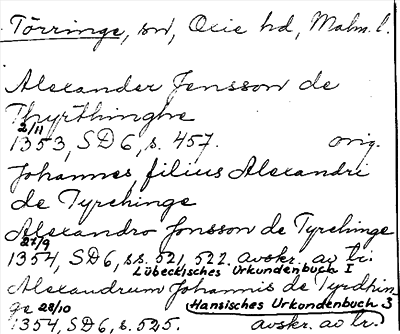 Törringe, sn, Oxie hd, Malm. l.
Alexander Jensson de
Thyrthinghe
2/11
1353, SD 6, s. 457. orig.
Johannes, filius Alexandri
de Tyrchinge
Alexandro Jonsson de Tyrchinge
27/9
1354, SD 6, ss. 521, 522. avskr. av tr.
Lübeckisches Urkundenbuch I
Alexandrum Johannis de Tyrdhin
ge 28/10 Hansisches Urkundenbuch 3
1354, SD 6, s. 525. avskr. av tr.